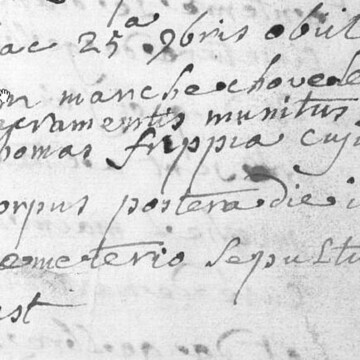 hac 25a 9bris obiit
in manchechovede
sacramentis munitus
thomas frippia cuju
corpus postera die i
coemeterio sepultu
est